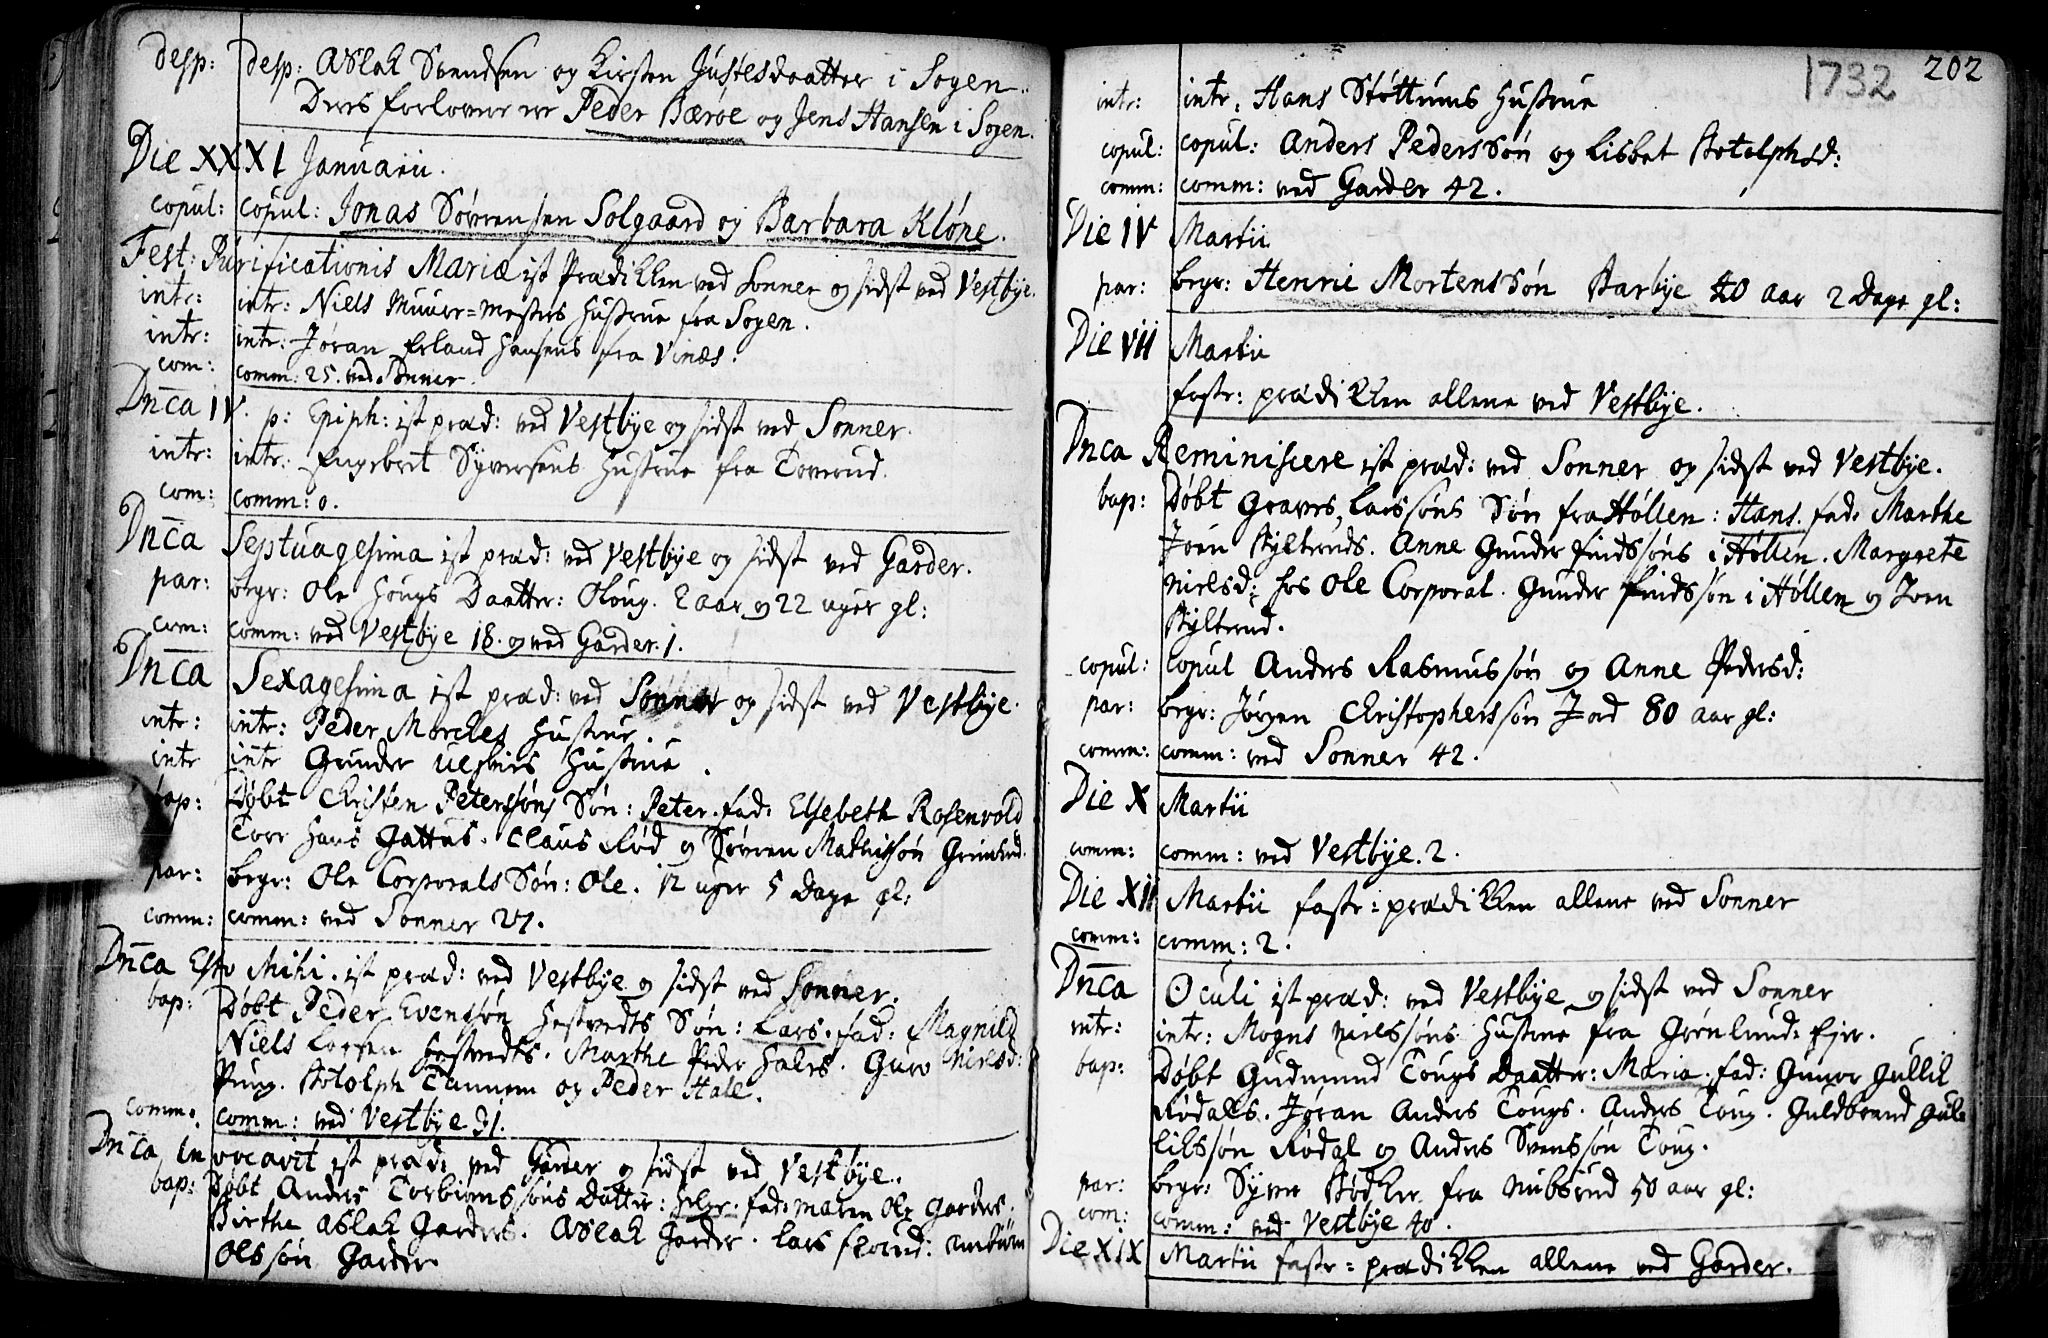 desp: desp: Aslak Svendsen og Kirsten Justesdaatter i Sogen.
Deres forlover er Peder Bærøe og Jens Hansen i Sogen.
Die XXXI Januarii.
copul: copul: Jonas Sørrensen Solgaard og Barbara Kløne.
Fest: Purificationis Mariæ ist Prædikken ved Sonner og sidst ved Vestbye.
intr: intr: Niels Muuer-Mesters Hustrue fra Sogen.
intr: intr: Jøran Erland Hansens fra Vinæs.
com: comm: 25. ved Sonner.
Dnca IV. p: Epiph: ist præd: ved Vestbye og sidst ved Sonner.
intr: intr: Engebret Syversens Hustrue fra Toverud.
com: comm: 0.
Dnca Septuagesima ist præd: ved Vestbye og sidst ved Garder.
par: begr: Ole Hougs Daatter: Oloug. 2 aar og 22 uger gl:
com: comm: ved Vestbye 18. og ved Garder. 1.
Dnca Sexagesima ist præd: ved Sonner og sidst ved Vestbye.
intr: intr: Peder Morches Hustrue.
intr intr Gunder Ulsbies Hustrue.
bap: Døbt Christen Peterssøns Søn: Peter. fad: Elsebeth Rosenvold
Tore Hans Gattus. Claus Rød og Sørren Mathissøn Grimsrud.
par: begr: Ole Corporals Søn: Ole. 12 uger 5 Dage gl:
comm: comm: ved Sonner 27.
Dnca Esto Mihi. ist præd: ved Vestbye og sidst ved Sonner.
bap: Døbt Peder Evenssøn Hestvedts Søn: Lars. fad: Magnild
Niels Larsen Hestvedts. Marthe Peder Halls. Guro Nielsd:
Pung. Botolph Tannem og Peder Hall.
comm. comm: ved Vestbye 31.
Dnca Invocavit ist præd: ved Garder og sidst ved Vestbye.
bap: Døbt Anders Torbiørnssøns Datter: fad: Maren Ole Garders.
Birthe Aslak Garders. Aslak Garder. Lars
Olssøn Garder
1732 202
intr: intr: Hans Støttums Hustrue
copul: copul: Anders Pederssøn og Lisbet Botolphsd:
comm: comm: ved Garder 42.
Die IV Martii
par: begr: Henric Mortenssøn Barbye 40 aar 2 Dage gl:
Die VII Martii
faste: prædikken allene ved Vestbye.
Dnca Reminiscere ist præd: ved Sonner og sidst ved Vestbye.
bap: Døbt Graves Larssøns Søn fra Høllen: Hans. fad: Marthe
Joen Kyltruds. Anne Gunder Findssøns i Høllen. Margrete
Nielsd: hos Ole Corporal. Gunder Findssøn i Høllen og Joen
Kyltrud.
copul: Copul Anders Rasmussøn og Anne Pedersd:
par: begr: Jørgen Christopherssøn Jød 80 aar gl:
comm: comm: ved Sonner 42.
Die X Martii
comm: comm: ved Vestbye. 2.
Die XII Martii faste: prædikken allene ved Sonner
comm: comm: 2.
Dnca Oculi ist præd: ved Vestbye og sidst ved Sonner
intr: intr: Mogns Nielssøns Hustrue fra Grønlund: Ejer.
bap: Døbt Gudmund Tougs Daatter: Maria. fad: Gunor Gullik
Rødals. Jøran Anders Tougs. Anders Toug. Guldbrand Gul-
likssøn Rødal og Anders Svenssøn Toug.
par: begr: Syver Bødker fra Nubsrud 50 aar gl:
com: comm: ved Vestbye 40.
Die XIX Martii faste: prædikken allene ved Garder.